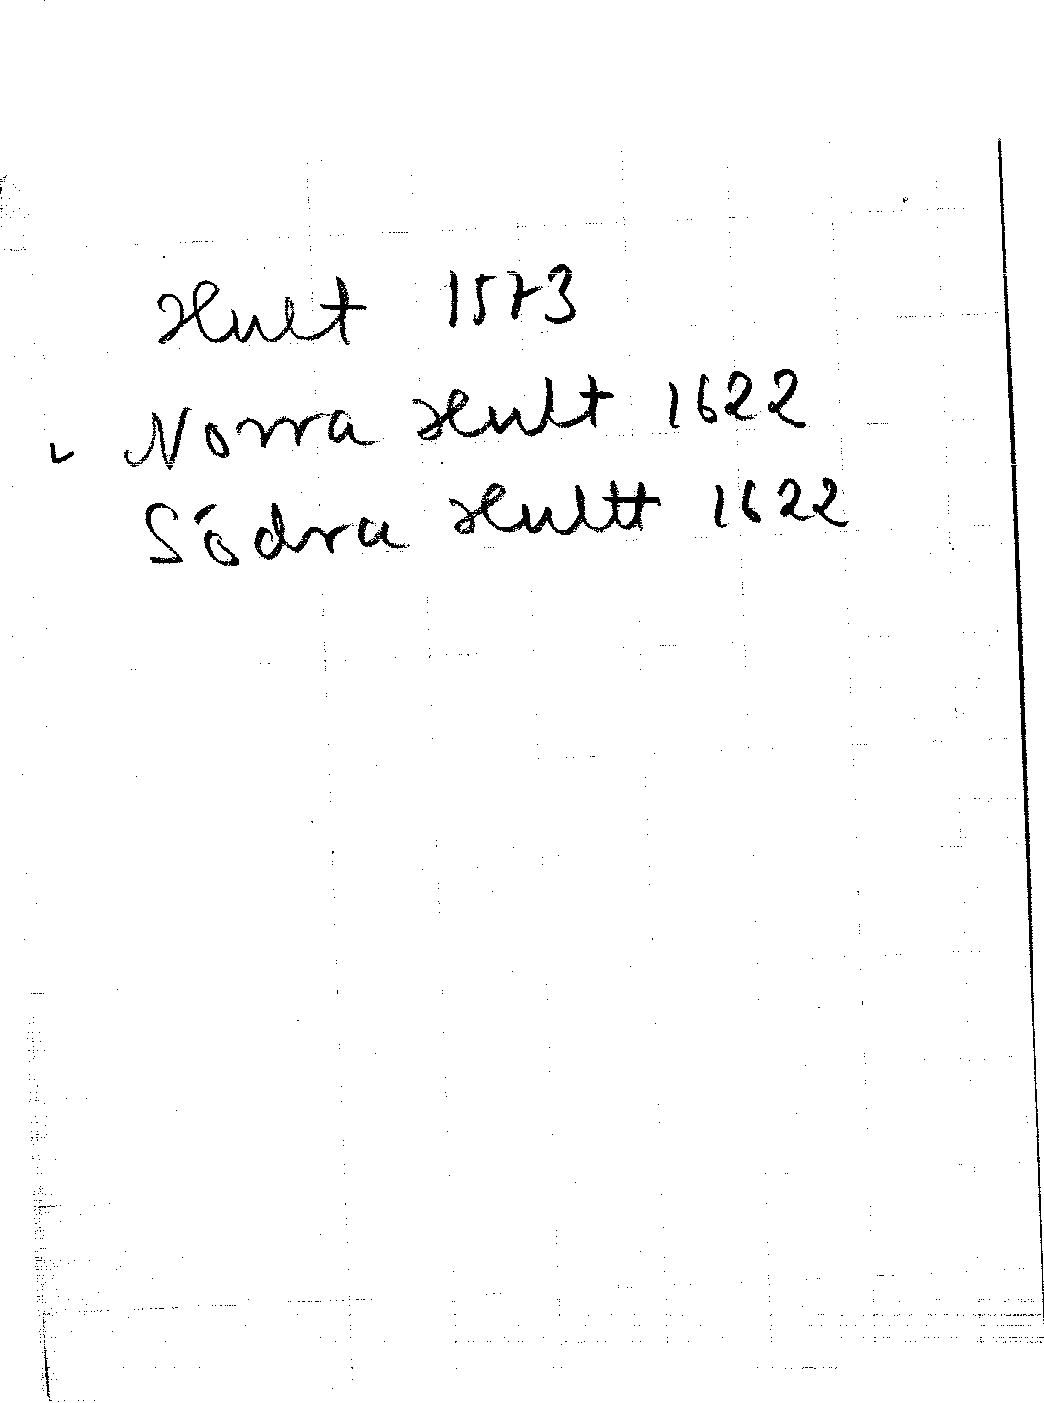 Hult 1573
✓ Norra Hult 1622
Södra Hultt 1622